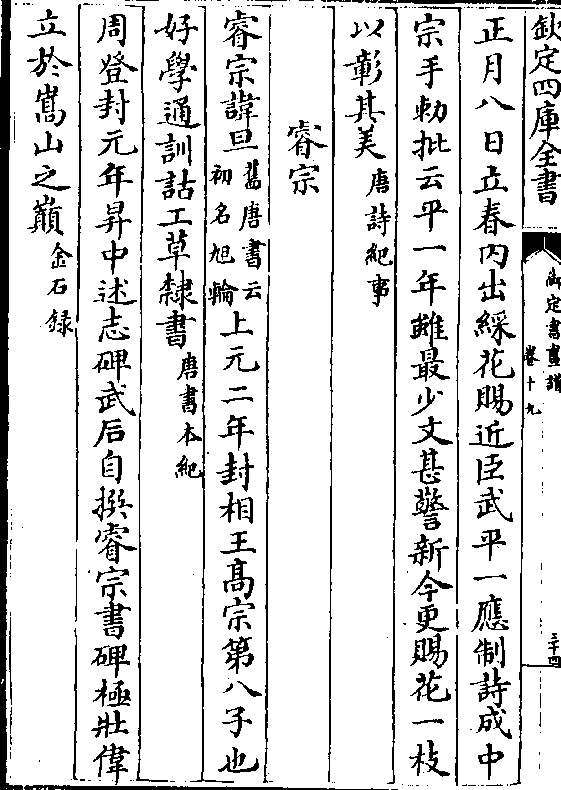 欽定四庫全書
御定書畫譜
卷十九
三十四
正月八日立春内出綵花賜近臣武平一應制詩成中
宗手勅批云平一年雖最少文甚警新今更賜花一枝
以彰其美唐詩紀事
睿宗
睿宗諱旦舊唐書云初名旭輪上元二年封相王髙宗第八子也
好學通訓詁工草隸書唐書本紀
周登封元年昇中述志碑武后自撰睿宗書碑極壯偉
立於嵩山之巔金石録